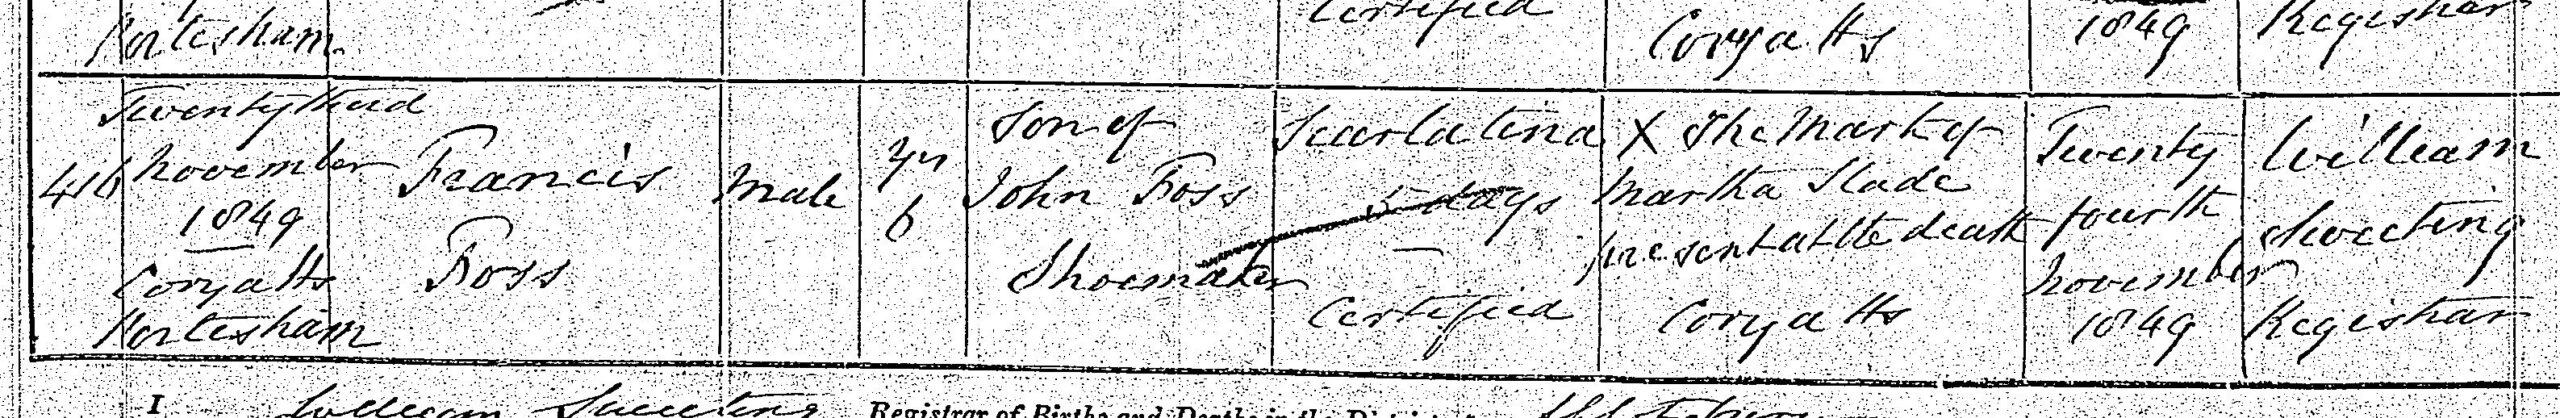 Portesham
Certified
Coryatts
1849
Registrar
416
Twenty third
November
1849
Coryatts
Portesham
Francis
Ross
Male
Yrs
6
Son of
John Ross
Shoemaker
Scarlatina
5 days
Certified
X The Mark of
Martha Slade
present at the death
Coryatts
Twenty
fourth
November
1849
William
Sweeting
Registrar
I William Sweeting Registrar of Births and Deaths in the District of